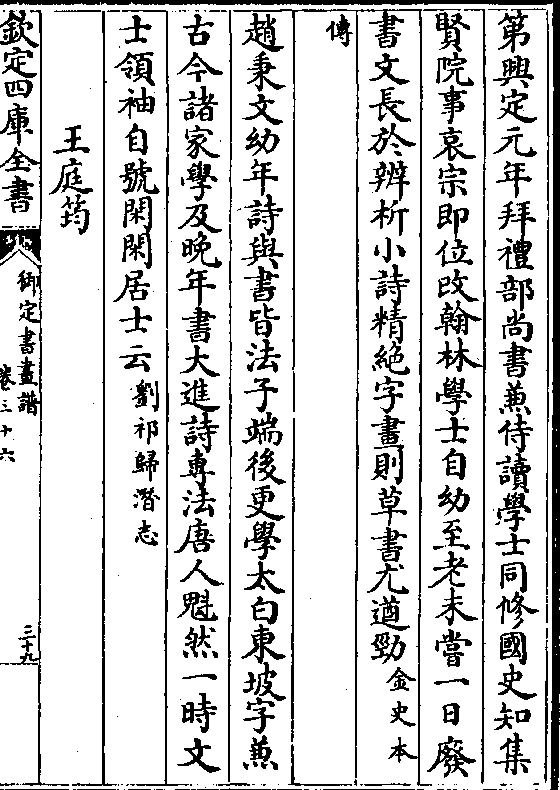 第興定元年拜禮部尚書兼侍讀學士同修國史知集
賢院事哀宗即位改翰林學士自幼至老未嘗一日廢
書文長於辨析小詩精絕字畫則草書尤遒勁金史本
傳
趙秉文幼年詩與書皆法子端後更學太白東坡字兼
古今諸家學及晩年書大進詩專法唐人魁然一時文
士領袖自號閑閑居士云劉祁歸潛志
王庭筠
欽定四庫全書
御定書畫譜
卷三十六
三十九